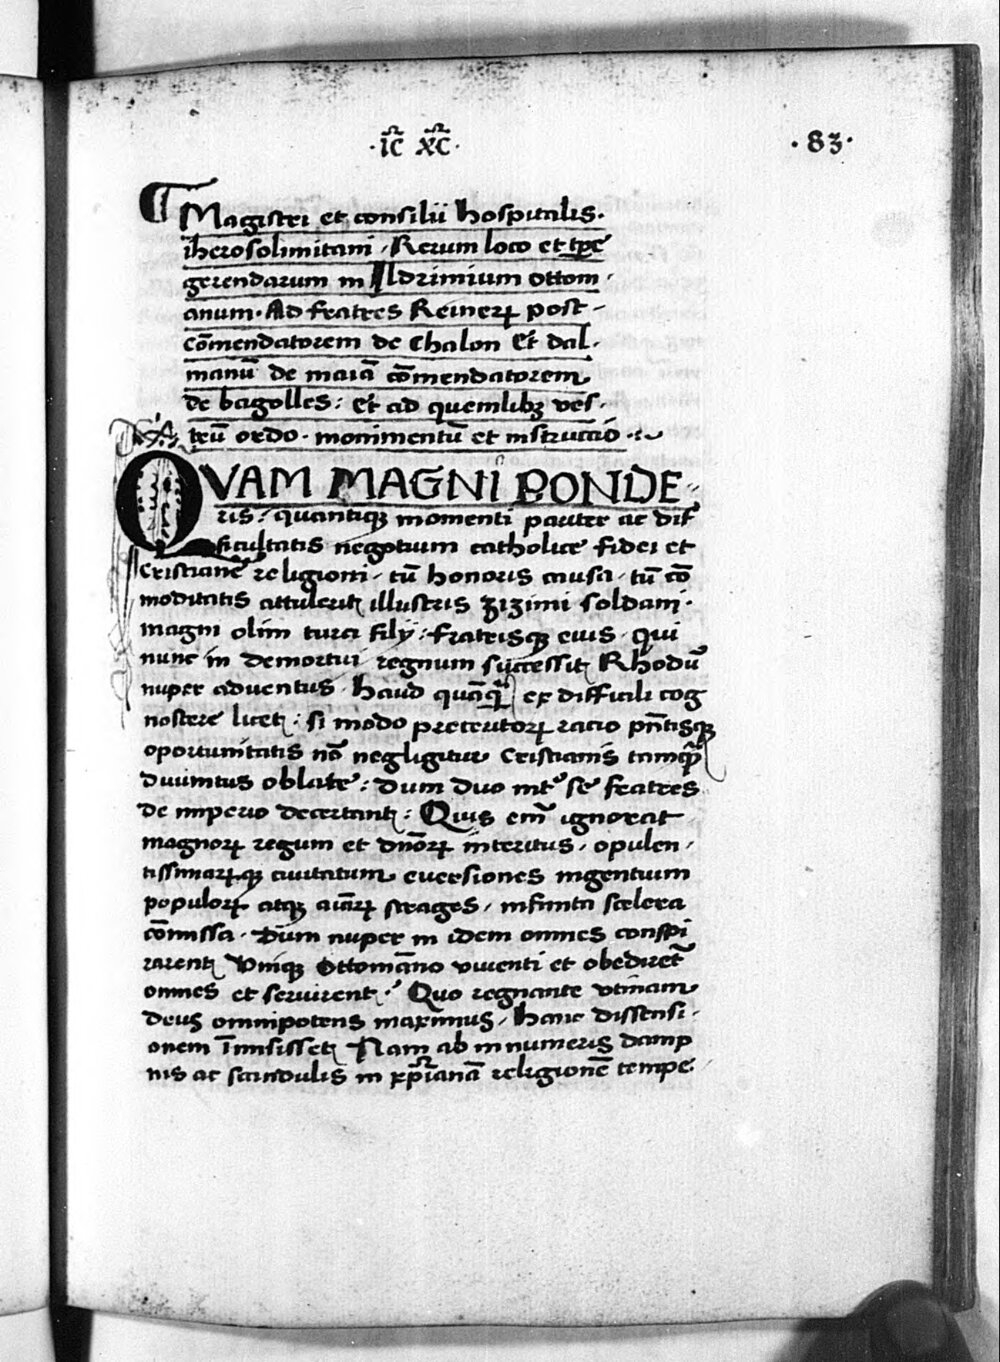 ·IC̄ XC̄·
·83·
Magistri et consilii hospitalis·
iherosolimitani · Rerum loco et tp̄e
gerendarum in Ildrimium ottom
anum · Ad fratres Reinerꝝ post
cōmendatorem de Chalon Et dal·
manū de maiā cōmendatorem
de bagolles: Et ad quemlibꝫ ves·
trū ordo · monimentū et instruccio
QVAM MAGNI PONDE
ris: quantiqꝫ momenti pariter ac dif
ficultatis negotium catholice fidei et
Cristiane religioni · tū honoris causa · tū cō
moditatis attulerit illustris zizimi soldani·
magni olim turci filÿ: fratrisqꝫ eius · qui
nunc in demortui regnum successit Rhodū
nuper adventus · haud quāqꝫ ex difficili cog
noscere licet: si modo preteritorꝝ racio pn̄tisqꝫ
oportunitatis nō negligitur Cristianis tamqꝫ
divinitus oblate: dum duo int̉ se fratres
de imperio decertant: Quis em̄ ignorat
magnorꝝ regum et dn̄orꝝ interitus · opulen·
tissimarꝝqꝫ civitatum eversiones ingentium
populorꝝ atqꝫ strages · infinita scelera
cōmissa · Dum nuper in idem omnes conspi
rarent Uniqꝫ Ottomāno viventi et obediret̄
omnes et servirent · Quo regnante utinam
deus omnipotens maximus · hanc dissensi·
onem īmisisset Nam ab innumeris damp
nis ac scandulis in xp̄ianā religionē tempe·